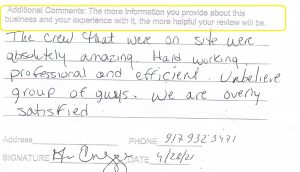 Additional Comments: The more information you provide about this
business and your experience with it, the more helpful your review will be.
The crew that were on site were
absolutely amazing. Hard working
professional and efficient. Unbelieve
group of guys. We are overly
satisfied
Address PHONE 917 932 3471
SIGNATURE DATE 4/28/21